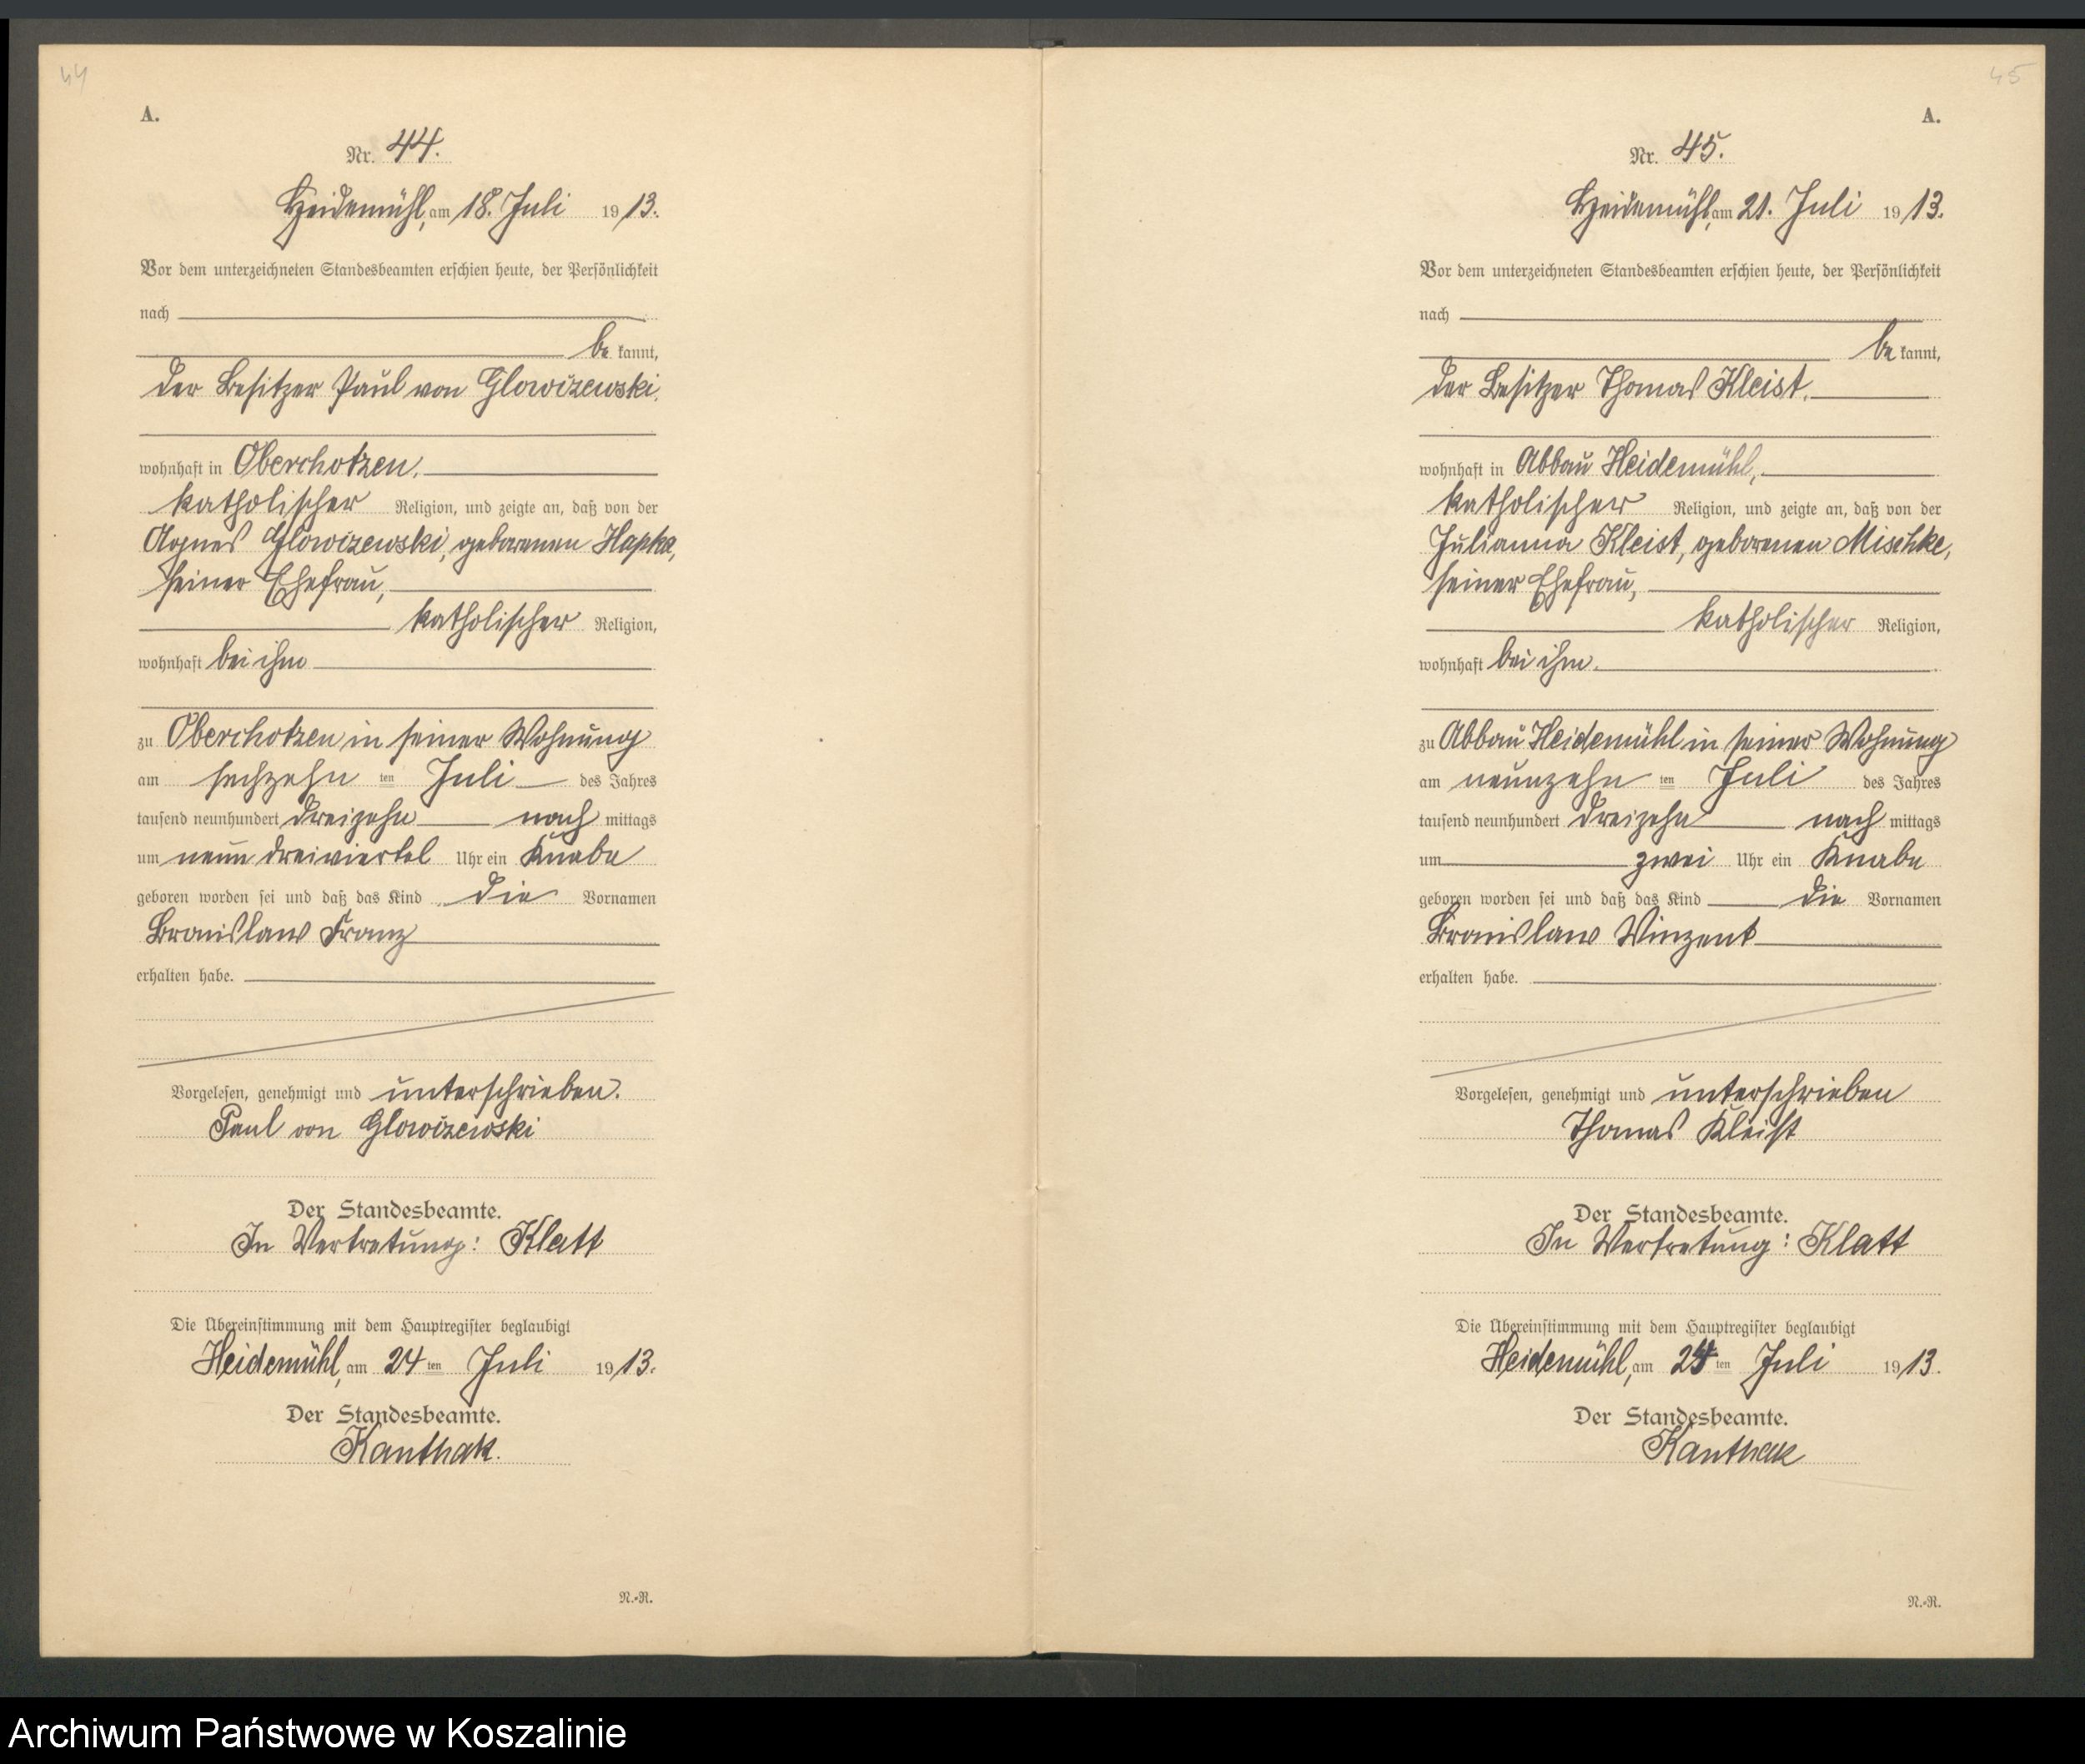 44
A.
Nr. 44.
Heidemühl, am 18. Juli 1913.
Vor dem unterzeichneten Standesbeamten erschien heute, der Persönlichkeit
nach
be kannt,
der Besitzer Paul von Glowczewski,
wohnhaft in Oberchotzen,
katholischer Religion, und zeigte an, daß von der
Agnes Glowczewski, geborenen Hapka,
seiner Ehefrau,
katholischer Religion,
wohnhaft bei ihm
zu Oberchotzen in seiner Wohnung
am sechzehn ten Juli des Jahres
tausend neunhundert dreizehn nach mittags
um neun dreiviertel Uhr ein Knabe
geboren worden sei und daß das Kind die Vornamen
Bronislaw Franz
erhalten habe.
Vorgelesen, genehmigt und unterschrieben.
Paul von Glowczewski
Der Standesbeamte.
In Vertretung: Klatt
Die Übereinstimmung mit dem Hauptregister beglaubigt
Heidemühl, am 24 ten Juli 1913.
Der Standesbeamte.
Kanthak.
N.-R.
45
A.
Nr. 45.
Heidemühl, am 21. Juli 1913.
Vor dem unterzeichneten Standesbeamten erschien heute, der Persönlichkeit
nach
be kannt,
der Besitzer Thomas Kleist,
wohnhaft in Abbau Heidemühl,
katholischer Religion, und zeigte an, daß von der
Julianna Kleist, geborenen Mischke,
seiner Ehefrau,
katholischer Religion,
wohnhaft bei ihm.
zu Abbau Heidemühl in seiner Wohnung
am neunzehn ten Juli des Jahres
tausend neunhundert dreizehn nach mittags
um zwei Uhr ein Knabe
geboren worden sei und daß das Kind die Vornamen
Bronislaw Winzent
erhalten habe.
Vorgelesen, genehmigt und unterschrieben
Thomas Kleist
Der Standesbeamte.
In Vertretung: Klatt
Die Übereinstimmung mit dem Hauptregister beglaubigt
Heidemühl, am 24 ten Juli 1913.
Der Standesbeamte.
Kanthak
N.-R.
Archiwum Państwowe w Koszalinie